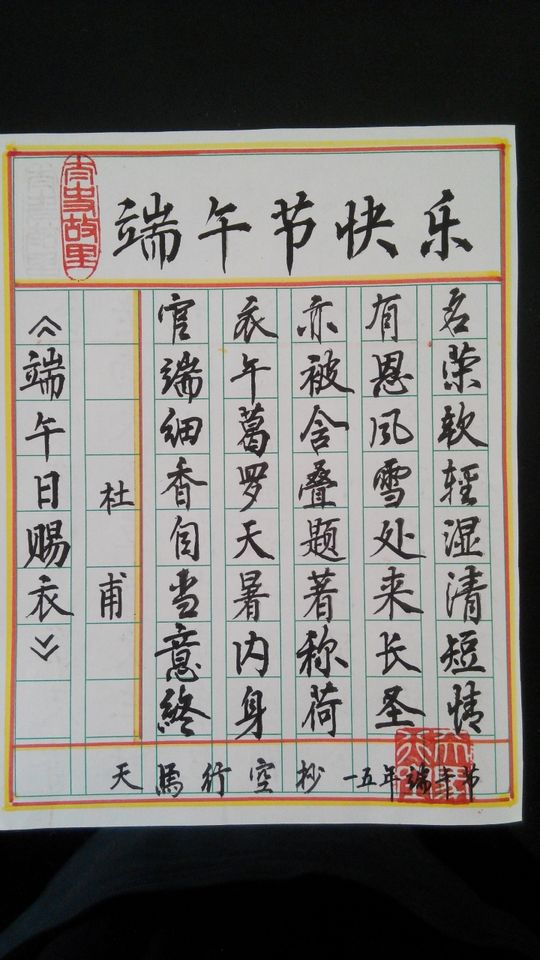 太史故里
端午节快乐
《端午日赐衣》
杜甫
官衣亦有名
端午被恩荣
细葛含风軟
香罗叠雪輕
自天题处湿
当暑著来清
意内称长短
終身荷圣情
天馬行空抄 一五年端午节